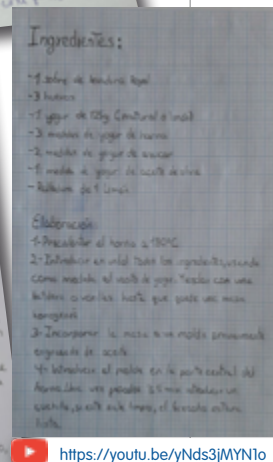 Ingredientes:
-1 sobre de levadura Royal
-3 huevos
-1 yogur de 125g (natural o limón)
-3 medidas de yogur de harina
-2 medidas de yogur de azúcar
-1 medida de yogur de aceite de oliva
-Ralladura de 1 limón
Elaboración:
1-Precalentar el horno a 180ºC
2-Introducir en un bol todos los ingredientes, usando
como medida el vaso de yogur. Mezclar con una
batidora o varillas hasta que quede una masa
homogénea.
3-Incorporar la masa a un molde previamente
engrasado de aceite.
4-Introducir el molde en la parte central del
horno. Una vez pasados 35 min introducir un
cuchillo, si este sale limpio, el bizcocho estará
listo.
https://youtu.be/yNds3jMYN1o